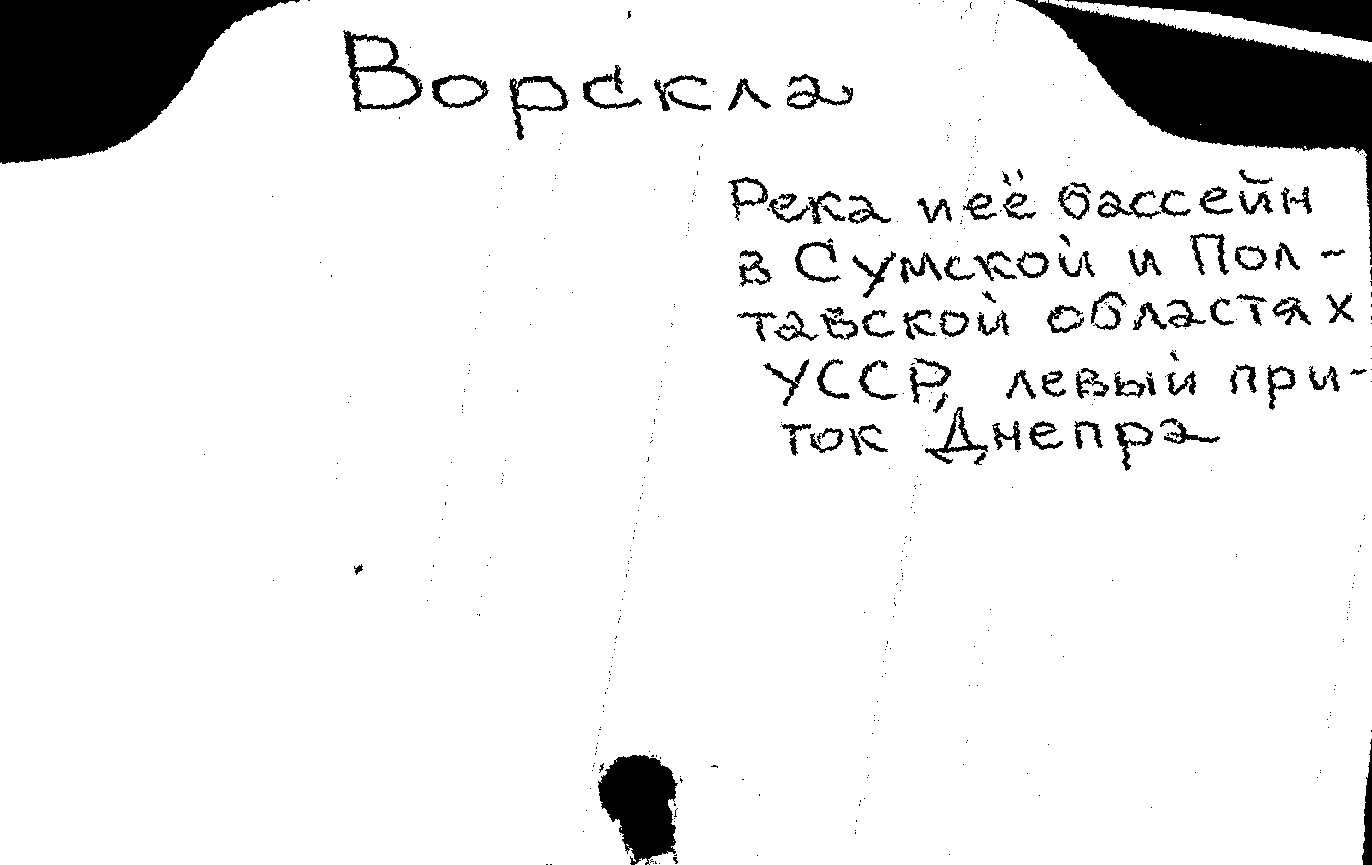 Ворскла
Река и её бассейн
в Сумской и Пол-
тавской областях
УССР, левый при-
ток Днепра